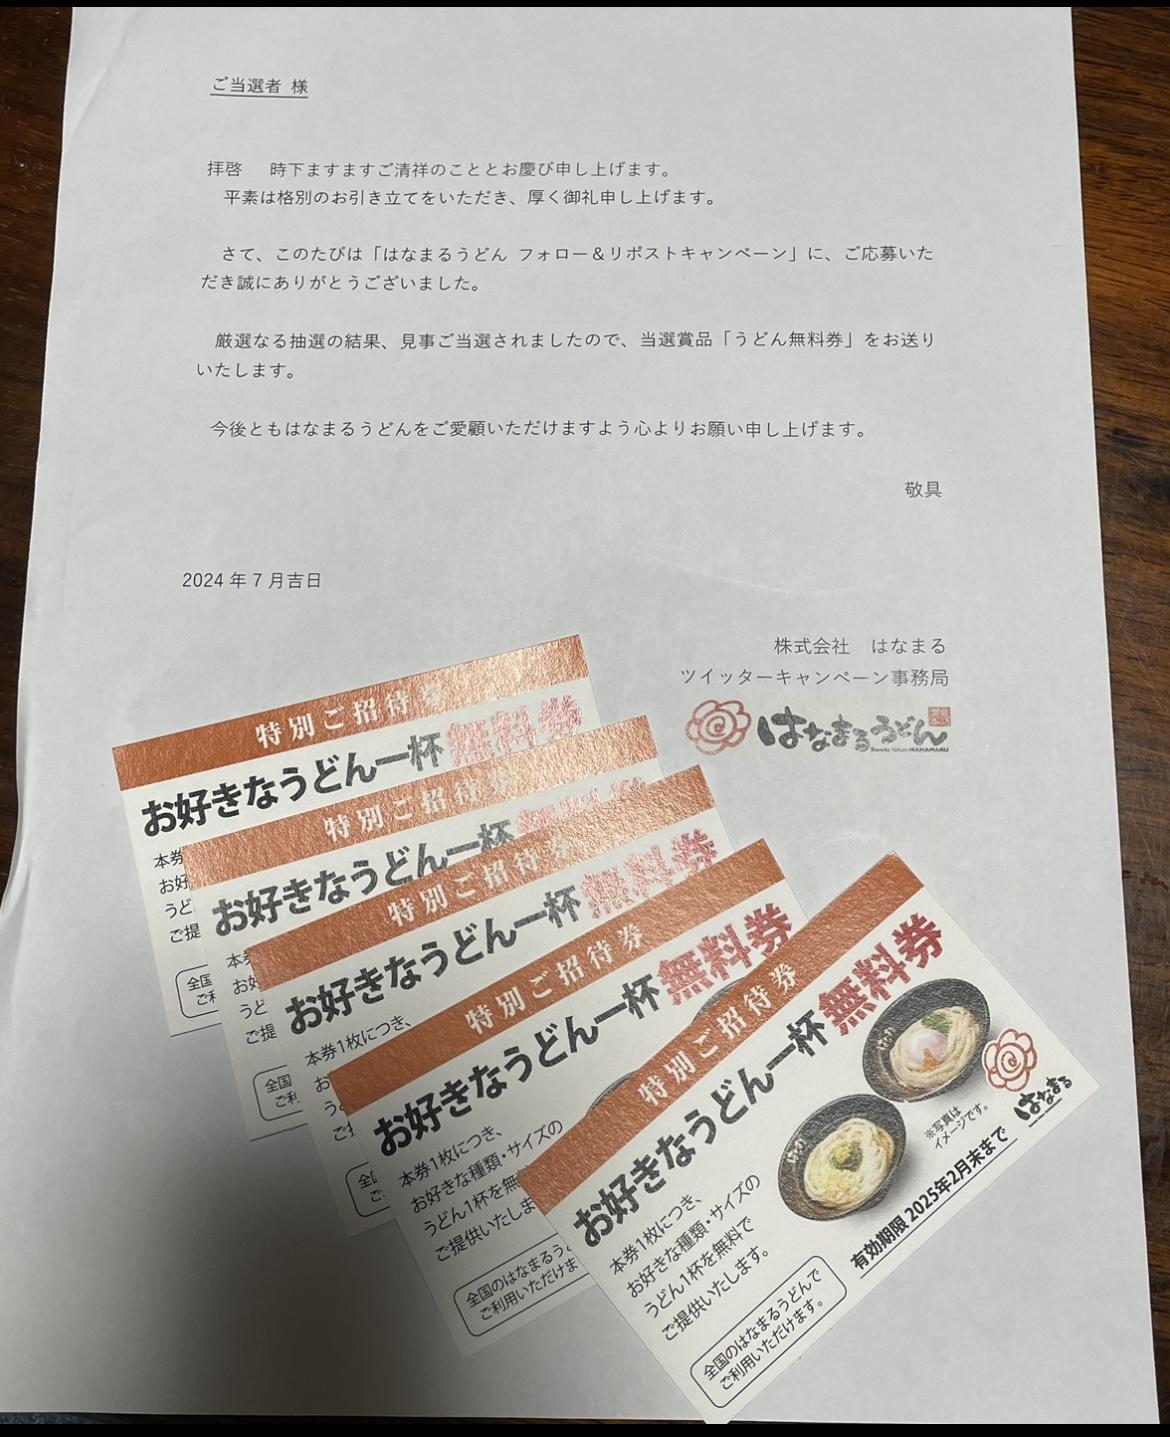 ご当選者 様
拝啓　時下ますますご清祥のこととお慶び申し上げます。
平素は格別のお引き立てをいただき、厚く御礼申し上げます。
さて、このたびは「はなまるうどん フォロー＆リポストキャンペーン」に、ご応募いた
だき誠にありがとうございました。
厳選なる抽選の結果、見事ご当選されましたので、当選賞品「うどん無料券」をお送り
いたします。
今後ともはなまるうどんをご愛顧いただけますよう心よりお願い申し上げます。
敬具
2024 年 7 月吉日
株式会社　はなまる
ツイッターキャンペーン事務局
はなまるうどん
特別ご招待券
お好きなうどん一杯無料券
本券
お好
うど
ご提
全国
ご利
特別ご招待券
お好きなうどん一杯
本券
お好
うど
ご提
全国
ご利
特別ご招待券
お好きなうどん一杯無料券
本券1枚につき、
お
う
ご
全
ご
特別ご招待券
お好きなうどん一杯無料券
本券1枚につき、
お好きな種類・サイズの
うどん1杯を無
ご提供いたしま
全国のはなまるう
ご利用いただけま
特別ご招待券
お好きなうどん一杯無料券
本券1枚につき、
お好きな種類・サイズの
うどん1杯を無料で
ご提供いたします。
全国のはなまるうどんで
ご利用いただけます。
※写真は
イメージです。
はなまる
有効期限 2025年2月末まで